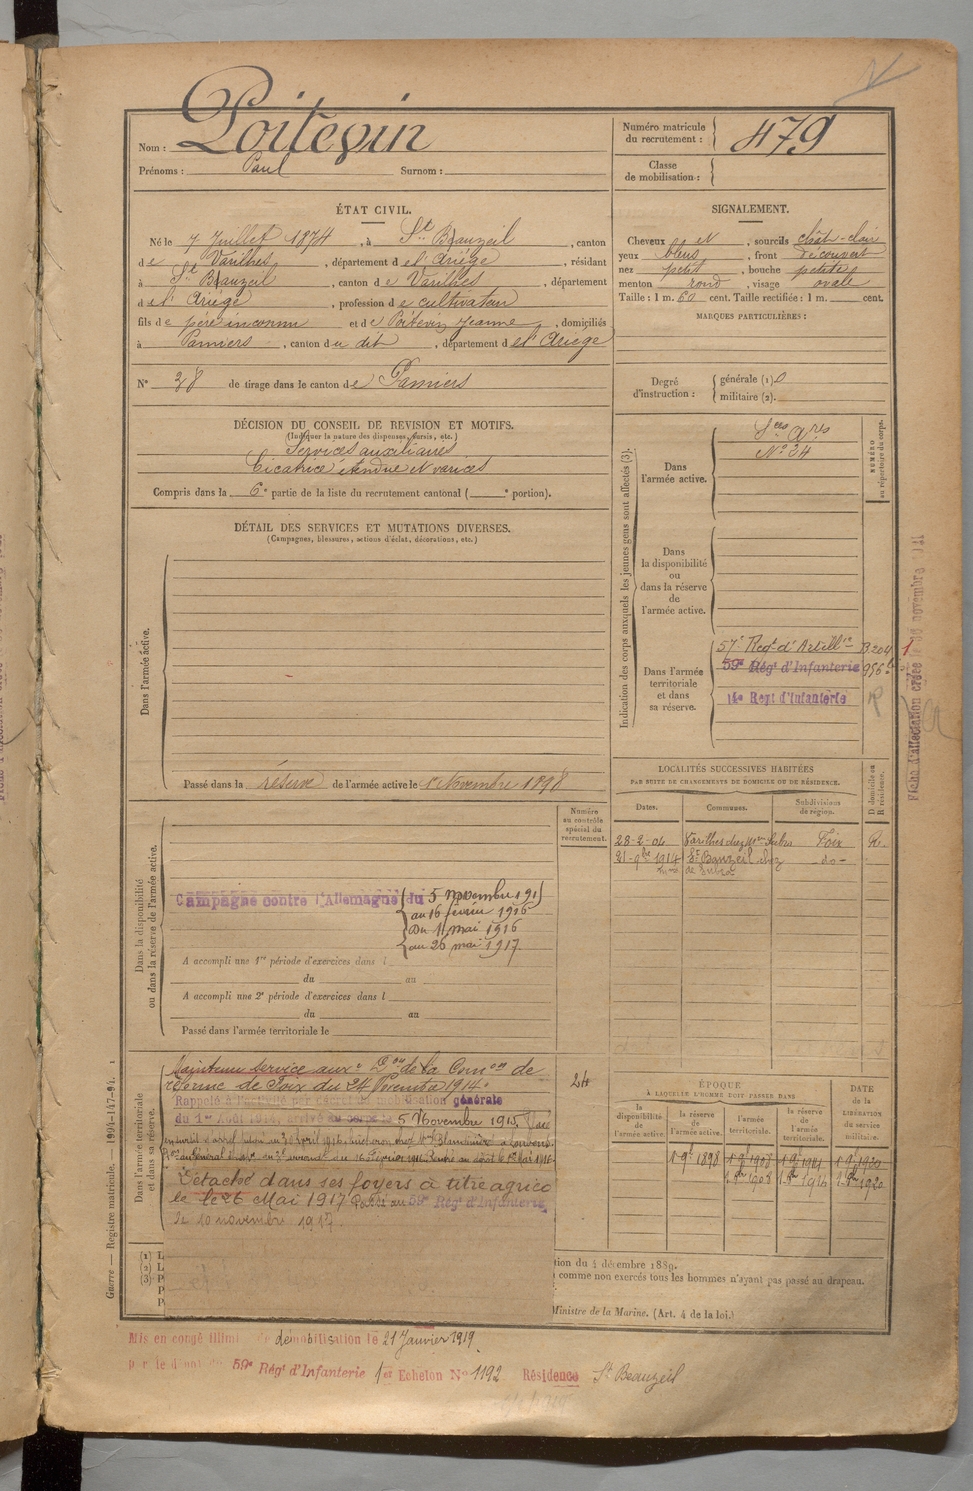 Nom : Poitevin
Prénoms : Paul Surnom :
Numéro matricule du recrutement : 479
Classe de mobilisation :
ÉTAT CIVIL.
Né le 7 Juillet 1874, à St Bauzeil, canton
de Varilhes, département de l'Ariège, résidant
à St Bauzeil, canton de Varilhes, département
de l'Ariège, profession de cultivateur
fils de père inconnu et de Poitevin Jeanne, domiciliés
à Pamiers, canton du dit, département de l'Ariège
N° 38 de tirage dans le canton de Pamiers
SIGNALEMENT.
Cheveux et, sourcils chât-clair
yeux bleus, front découvert
nez petit, bouche petite
menton rond, visage ovale
Taille : 1 m. 60 cent. Taille rectifiée : 1 m. cent.
MARQUES PARTICULIÈRES :
Degré d'instruction : générale (1) 0
militaire (2).
DÉCISION DU CONSEIL DE REVISION ET MOTIFS.
(Indiquer la nature des dispenses, sursis, etc.)
Services auxiliaires
Cicatrice étendue et varices
Compris dans la 6e partie de la liste du recrutement cantonal ( e portion).
DÉTAIL DES SERVICES ET MUTATIONS DIVERSES.
(Campagnes, blessures, actions d'éclat, décorations, etc.)
Dans l'armée active.
Passé dans la réserve de l'armée active le 1er Novembre 1898
Indication des corps auxquels les jeunes gens sont affectés (3).
NUMÉRO au répertoire du corps.
Dans l'armée active.
N° 34
Dans la disponibilité ou dans la réserve de l'armée active.
Dans l'armée territoriale et dans sa réserve.
57e Regt d'Artillie
59e Régt d'Infanterie
14e Regt d'Infanterie
Numéro au contrôle spécial du recrutement.
Dans la disponibilité ou dans la réserve de l'armée active.
Campagne contre l'Allemagne du 5 novembre 191
au 16 février 1916
Du 1 mai 1916
au 26 mai 1917.
A accompli une 1re période d'exercices dans l
du au
A accompli une 2e période d'exercices dans l
du au
Passé dans l'armée territoriale le
LOCALITÉS SUCCESSIVES HABITÉES
PAR SUITE DE CHANGEMENTS DE DOMICILE OU DE RÉSIDENCE.
Dates. Communes. Subdivisions de région. D domicile ou R résidence.
28-2-04 Varilhes chez Mr Subra Foix R.
21-9bre 1914 St Bauzeil chez -do-
de Subra
Dans l'armée territoriale et dans sa réserve.
Maintenu service auxre Don de la Comon de
réforme de Foix du 24 Novembre 1914.
Rappelé à l'activité par décret de mobilisation générale
du 1er Août 1914, arrivé au corps le 5 Novembre 1915.
Détaché dans ses foyers à titre agrico
le le 26 Mai 1917 Passé au 59e Régt d'Infanterie
le 10 novembre 1917.
24
ÉPOQUE
À LAQUELLE L'HOMME DOIT PASSER DANS
la disponibilité de l'armée active. la réserve de l'armée active. l'armée territoriale. la réserve de l'armée territoriale.
DATE DE LA LIBÉRATION DU SERVICE militaire.
Guerre — Registre matricule. — 1994-147-94.
tion du 4 décembre 1889.
comme non exercés tous les hommes n'ayant pas passé au drapeau.
Ministre de la Marine. (Art. 4 de la loi.)
Mis en congé illimi de démobilisation le 21 Janvier 1919.
59e Régt d'Infanterie 1er Echelon N° 1192 Résidence St Bauzeil